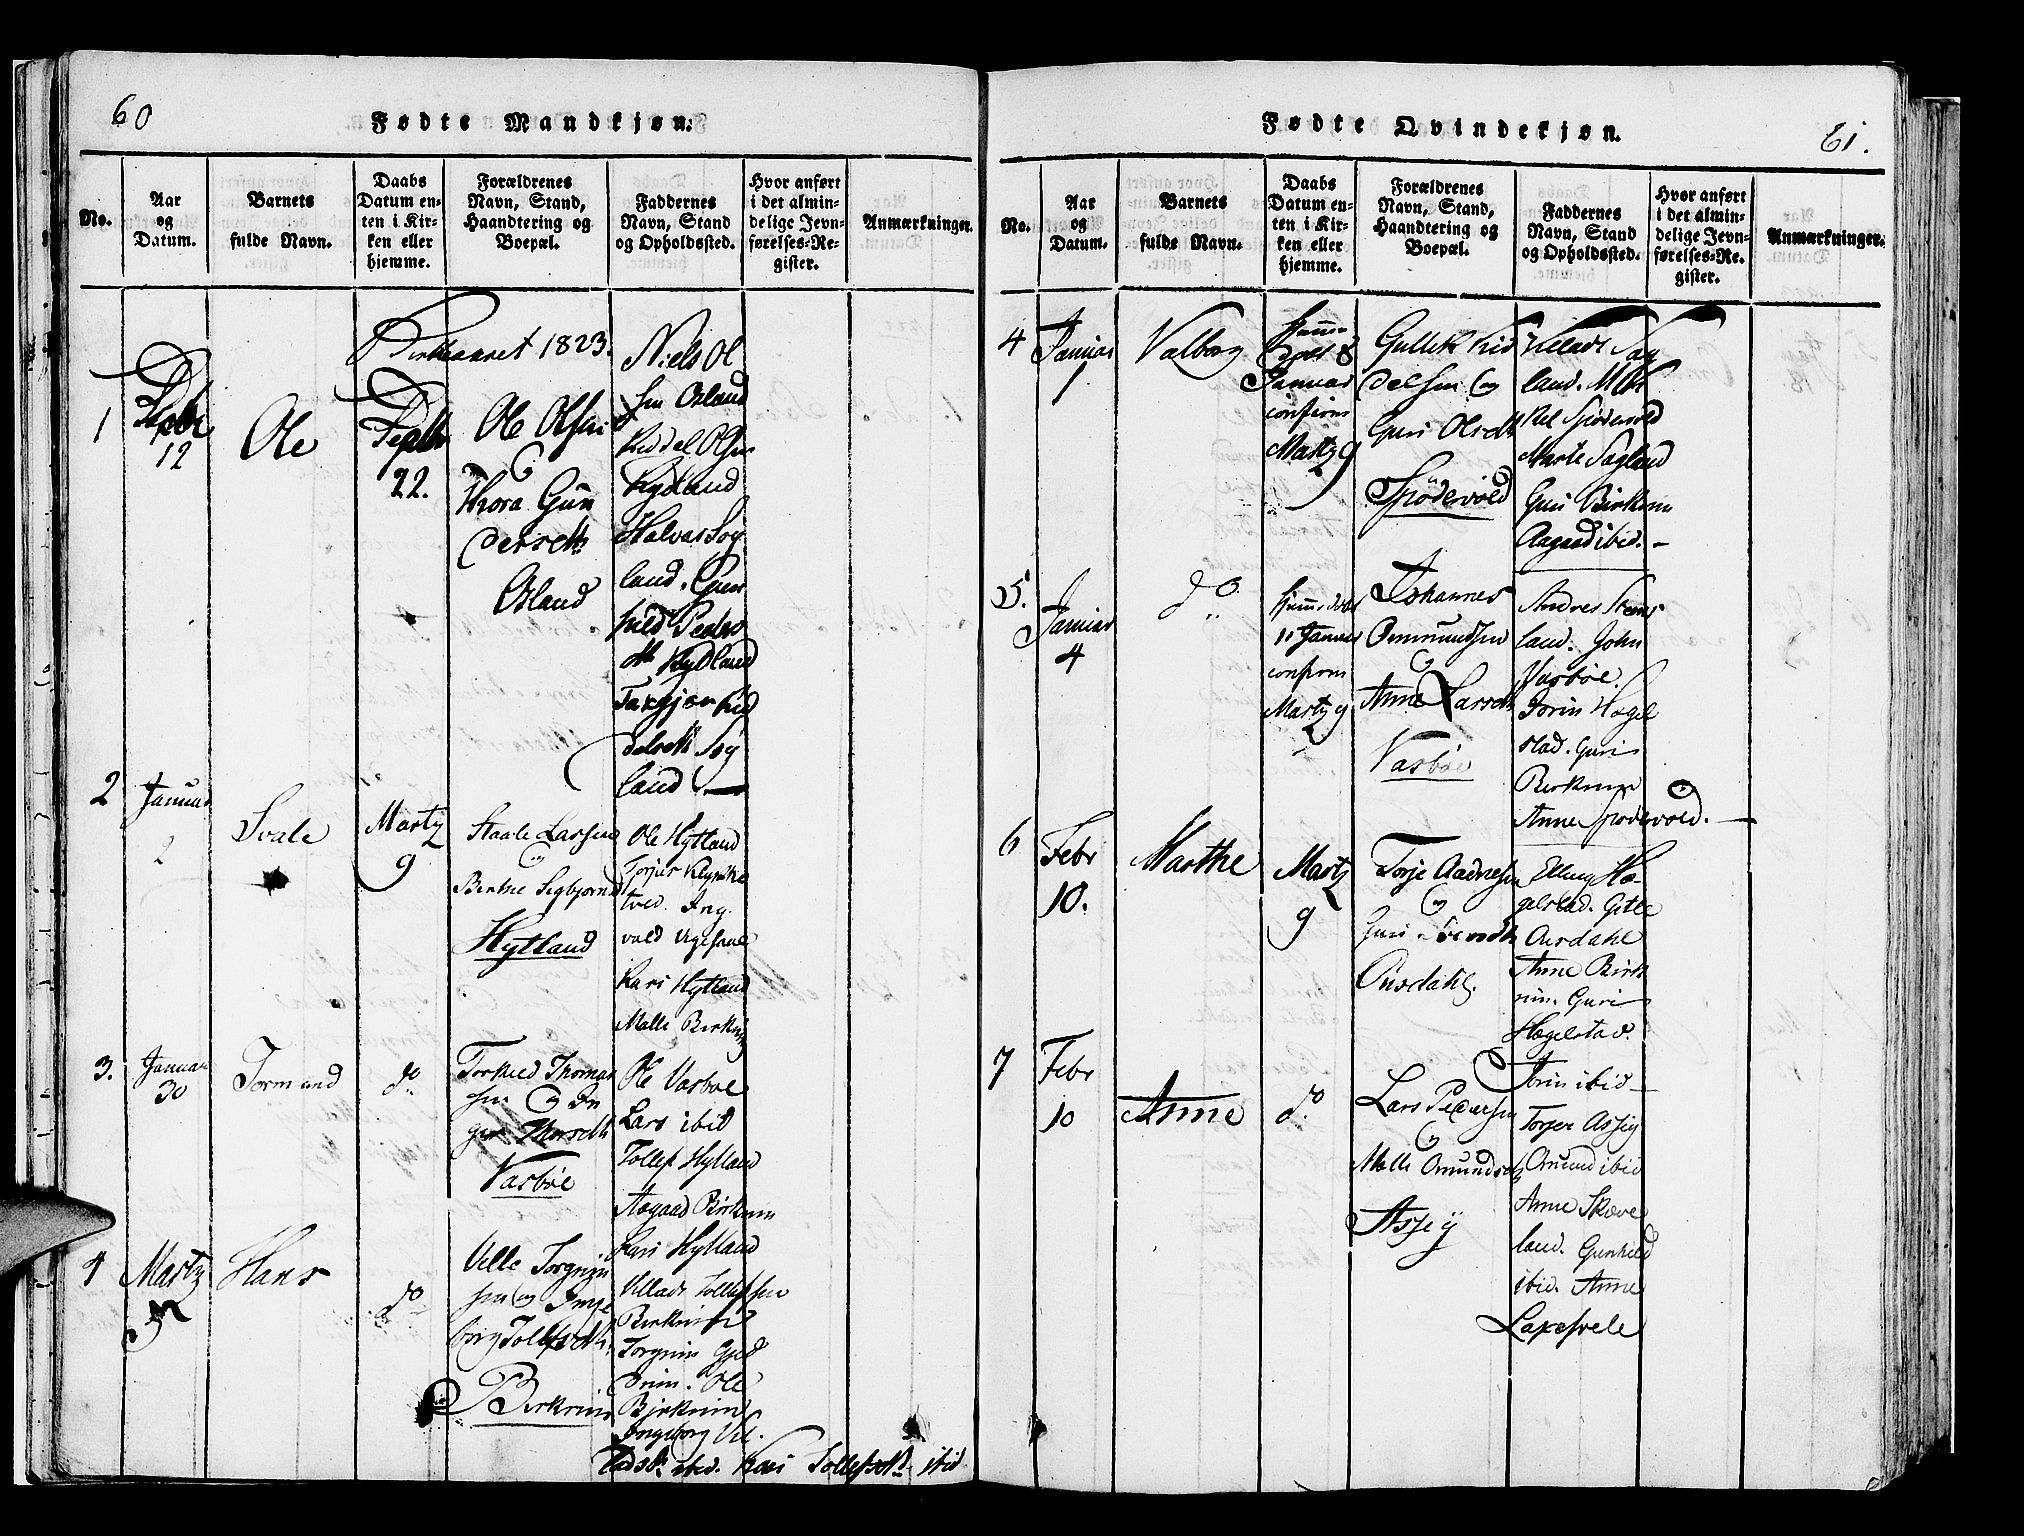 60
Fødte Mandkjøn.
No.
Aar
og
Datum.
Barnets
fulde Navn.
Daabs
Datum en-
ten i Kir-
ken eller
hjemme.
Forældrenes
Navn, Stand,
Haandtering og
Boepæl.
Faddernes
Navn, Stand
og Opholdssted.
Hvor anført
i det almin-
delige Jevn-
førelses-Re-
gister.
Anmærkninger.
Kirkeaaret 1823.
1
Septbr
12
Ole
Septbr
22.
Ole Olsen
og
Thora Gun
dersdtr
Osland
Niels Ol
sen Osland
Keddel Olsen
Hyland
Halvar Soy
land. Gun
hild Peders
dtr Hydland
Taagjer Kid
delsdtr Soy
land
2
Januar
2
Svale
Marty
9
Staale Larsen
og
Berthe Segbjorns
Hytland
Ole Hytland
Torjus
tved. Ing.
vald
Kari Hytland
Malle Birkrim
3.
Januar
30
Tormund
do
Torkied Thomas
sen og In
ger Thorsdtr
Vasbøe
Ole Vasboe
Lars ibid
Tollef Hytland
Aagaad Birkrem
Kari Hytland
4
Marty
Hans
do
Ville Torgrim
sen og Inge
borg Tollefsdtr.
Birkrim
Villads Tollefsen
Birkrim
Torgrim Gjed
drim. Ole
Bjrkrim
Ingeborg Vil.
ladsdr. ibid. Kari Tollefsdtr ibid
61.
Fødte Qvindekjøn.
No.
Aar
og
Datum.
Barnets
fulde Navn.
Daabs
Datum en-
ten i Kir-
ken eller
hjemme.
Forældrenes
Navn, Stand,
Haandtering og
Boepæl.
Faddernes
Navn, Stand
og Opholdssted.
Hvor anført
i det almin-
delige Jevn-
førelses-Re-
gister.
Anmærkninger.
4
Januar
1
Valborg
Hjemme
døbt 8
Januar
confirm
Marty 9
Gullek Kid
delsen og
Guri Olsdtr
Spødevold
Villads Søy
land. Mik
kel Spødevold
Marte Søyland
Guri Birkrem
Aagaad ibid.
5.
Januar
4
do
Hjemmedøbt
11 Januar
confirm
Marty 9
Johannes
Ommundsen
og
Anne Larsdtr
Vasbøe
Andres Stens
land. John
Vasbøe.
Torin Hægel
stad. Guri
Birkrim
Anne Spødevold.
6
Febr
10.
Marthe
Marty
9
Torje Aadnesen
og
Guri
Orrsdahl.
Elling Hæ-
gelstad. Gitle
Orrsdahl
Anne Birk
rim. Guri
Hægelstad.
Torin ibid
7
Febr
10
Anne
do
Lars Pedersen
og
Malli Omundsdtr
Assjey
Torjer Assjey
Omund ibid
Anne Skæve
land. Gunhild
ibid. Anne
Laxesvele